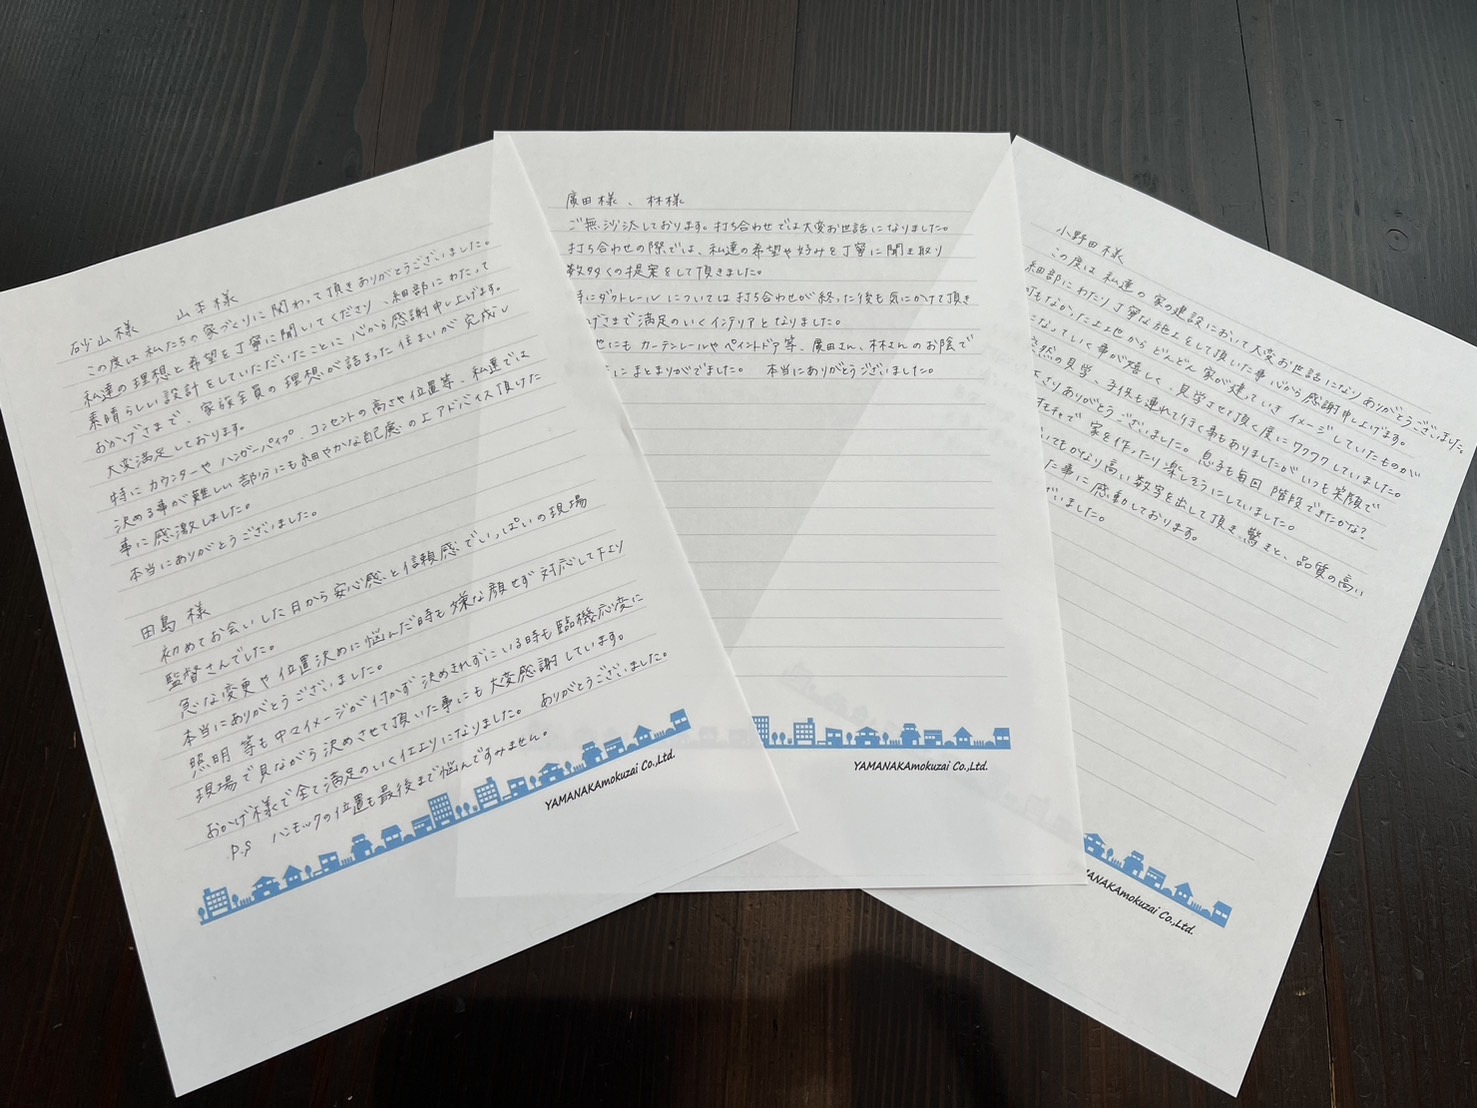 砂山様　山本様
この度は私たちの家づくりに関わって頂きありがとうございました。
私達の理想と希望を丁寧に聞いてくださり、細部にわたって
素晴らしい設計をしていただいたことに心から感謝申し上げます。
おかげさまで、家族全員の理想が詰まった住まいが完成し
大変満足しております。
特にカウンターやハンガーパイプ、コンセントの高さや位置等、私達では
決める事が難しい部分にも細やかな配慮の上アドバイス頂けた
事に感激しました。
本当にありがとうございました。
田島様
初めてお会いした日から安心感と信頼感でいっぱいの現場
監督さんでした。
急な変更や位置決めに悩んだ時も嫌な顔せず対応して下さり
本当にありがとうございました。
照明等も中々イメージが付かず決めきれずにいる時も臨機応変に
現場で見ながら決めさせて頂いた事にも大変感謝しています。
おかげ様で全て満足のいく仕上りになりました。ありがとうございました。
P.S ハンモックの位置も最後まで悩んですみません。
YAMANAKAmokuzai Co.,Ltd.
廣田様、林様
ご無沙汰しております。打ち合わせでは大変お世話になりました。
打ち合わせの際では、私達の希望や好みを丁寧に聞き取り
数多くの提案をして頂きました。
特にダクトレールについては打ち合わせが終った後も気にかけて頂き
げさまで満足のいくインテリアとなりました。
にもカーテンレールやペイントドア等、廣田さん、林さんのお陰で
にまとまりがでました。　本当にありがとうございました。
YAMANAKAmokuzai Co.,Ltd.
小野田様
この度は私達の家の建設において大変お世話になりありがとうございました。
細部にわたり丁寧な施工をして頂いた事心から感謝申し上げます。
何もなかった土地からどんどん家が建っていきイメージしていたものが
になっていく事が嬉しく、見学させて頂く度にワクワクしていました。
突然の見学、子供も連れて行く事もありましたがいつも笑顔で
下さりありがとうございました。息子も毎回階段できたかな?
オモチャで家を作ったり楽しそうにしていました。
いてもかなり高い数字を出して頂き、驚きと、品質の高い
た事に感動しております。
ざいました。
MANAKAmokuzai Co.,Ltd.